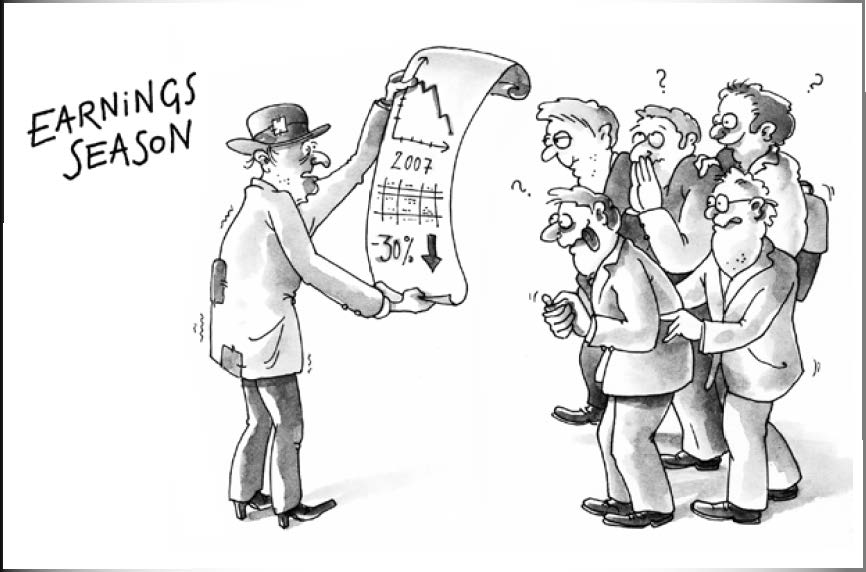 EARNiNGS
SEASON
2007
-30%
?
?
?